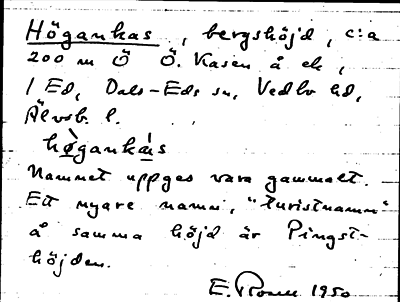 Högankas, bergshöjd, c:a
200 m Ö Ö. Kasen å ek,
1 Ed, Dals-Eds sn, Vedbo hd,
Älvsb. l.
høgankás
Namnet uppges vara gammalt.
Ett nyare namn, "turistnamn"
å samma höjd är Pingst-
höjden.
E. 1950